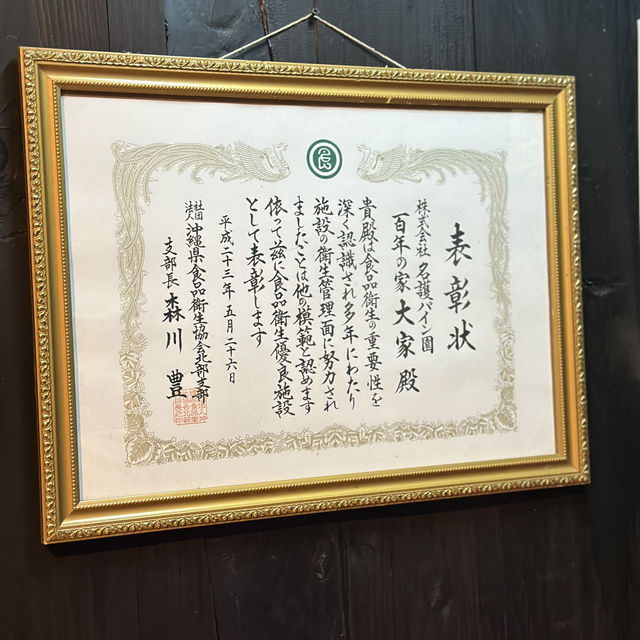 表彰状
株式会社 名護パイン園
百年の家 大家 殿
貴殿は食品衛生の重要性を
深く認識され多年にわたり
施設の衛生管理面に努力され
ましたことは他の模範と認めます
依って茲に食品衛生優良施設
として表彰します
平成二十三年五月二十六日
社団法人 沖縄県食品衛生協会北部支部
支部長 森川 豊